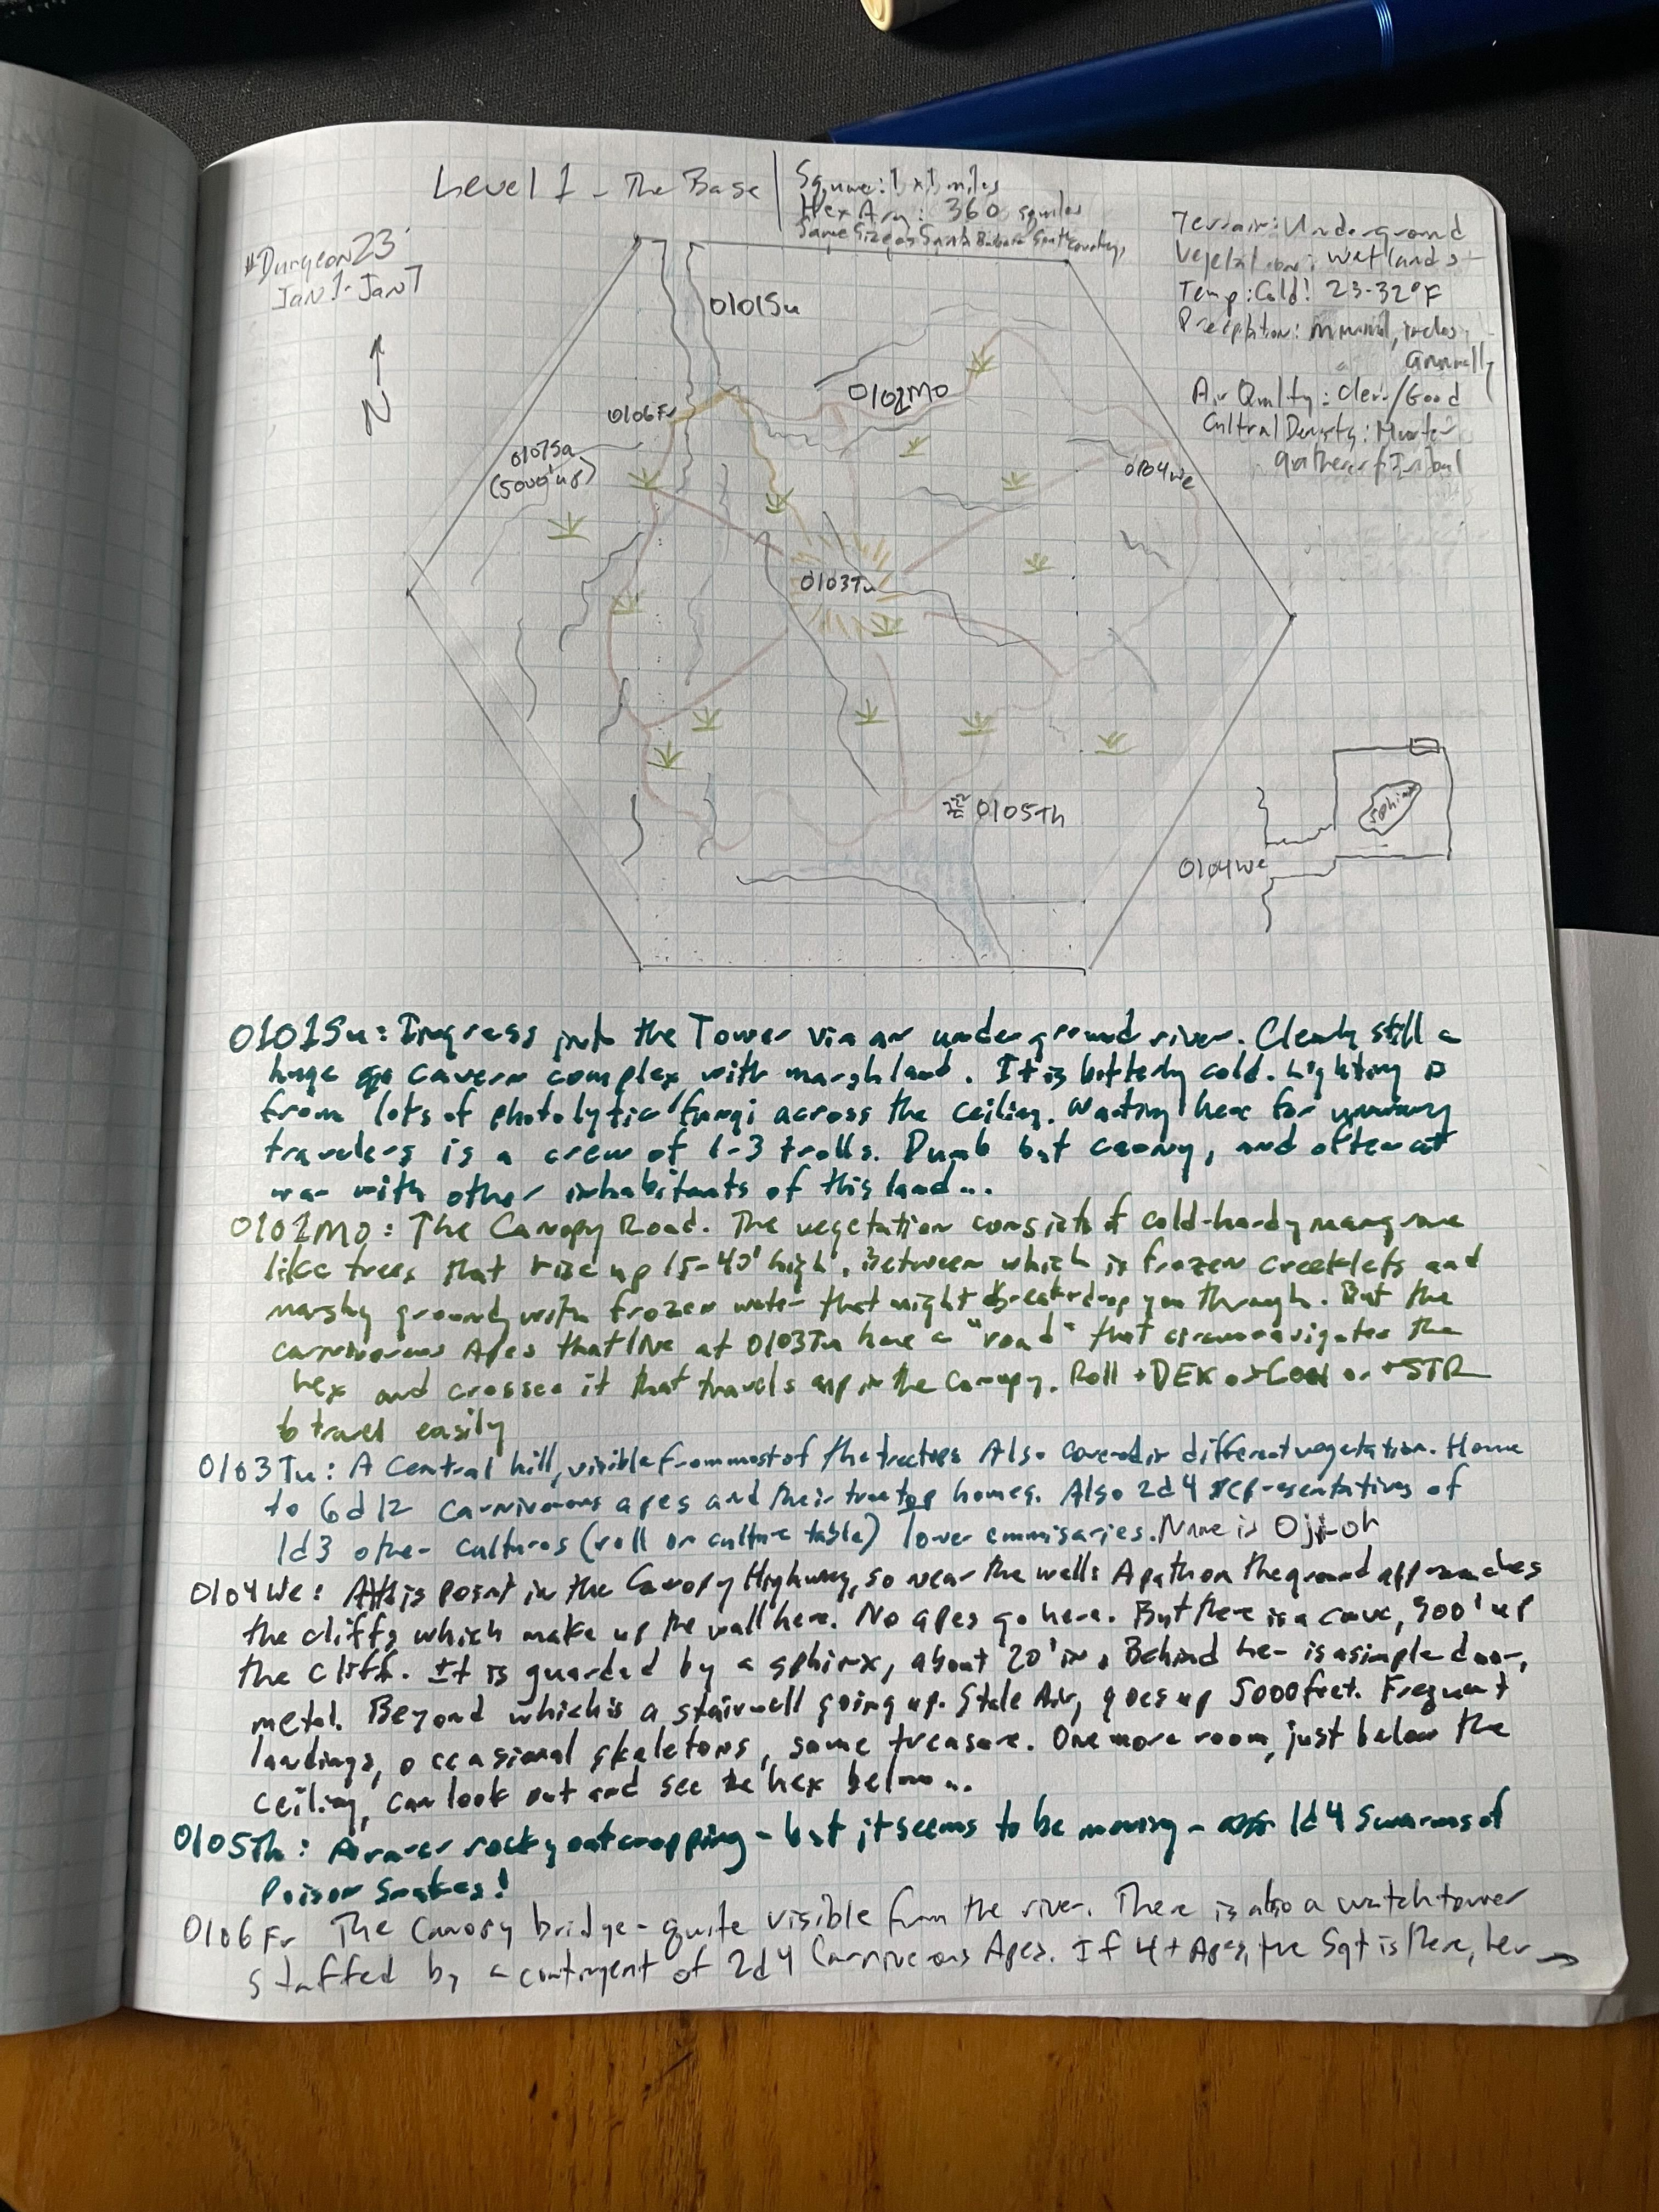 Level 1 - The Base
Square: 1 x 1 miles
Hex Area: 360 sqmiles
Same Size as Santa Barbara South County
#Dungeon23
Jan 1 - Jan 7
N
Terrain: Underground
Vegetation: Wetlands
Temp: Cold! 23-32°F
Precipitation: Minimal, inches
annually
Air Quality: Clear/Good
Cultral Density: Hunter
gatherer/Tribal
0101Su
0102Mo
0106Fr
0107Sa
(5000' up)
0104We
0103Tu
0105Th
Sphinx
0104We
0101Su: Ingress into the Tower via an underground river. Clearly still a
huge cavern complex with marshland. It is bitterly cold. Lighting is
from lots of photolytic fungi across the ceiling. Waiting here for unwary
travelers is a crew of 1-3 trolls. Dumb but canny, and often at
war with other inhabitants of this land...
0102Mo: The Canopy Road. The vegetation consists of cold-hardy mangrove
like trees that rise up 15-40' high. Between which is frozen creeklets and
marshy ground with frozen water that might break + drop you through. But the
carnivorous Apes that live at 0103Tu have a "road" that circumnavigates the
hex and crosses it that travels up in the canopy. Roll +DEX or +CON or +STR
to travel easily
0103Tu: A Central hill, visible from most of the treetops Also covered in different vegetation. Home
to 6d12 carnivorous apes and their treetop homes. Also 2d4 representatives of
1d3 other cultures (roll on culture table) lower emmisaries. Name is Oji-oh
0104We: At this point in the Canopy Highway, so near the walls A path on the ground approaches
the cliffs which make up the wall here. No apes go here. But there is a cave, 900' up
the cliff. It is guarded by a sphinx, about 20' in. Behind her is a simple door,
metal. Beyond which is a stairwell going up. Stale Air, goes up 5000 feet. Frequent
landings, occasional skeletons, some treasure. One more room, just below the
ceiling, can look out and see the hex below...
0105Th: A rarer rocky outcropping - but it seems to be moving - 1d4 Swarms of
Poison Snakes!
0106Fr The Canopy bridge - quite visible from the river. There is also a watchtower
staffed by a contingent of 2d4 Carnivorous Apes. If 4+ Apes, the Sgt is there, her →